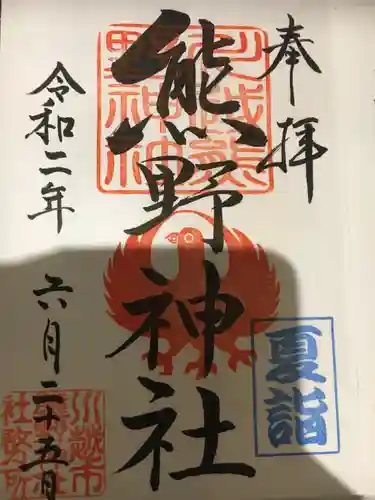 奉拝
熊野神社
令和二年
六月二十五日
夏詣
川越熊野神社
川越市
熊野神社
社務所